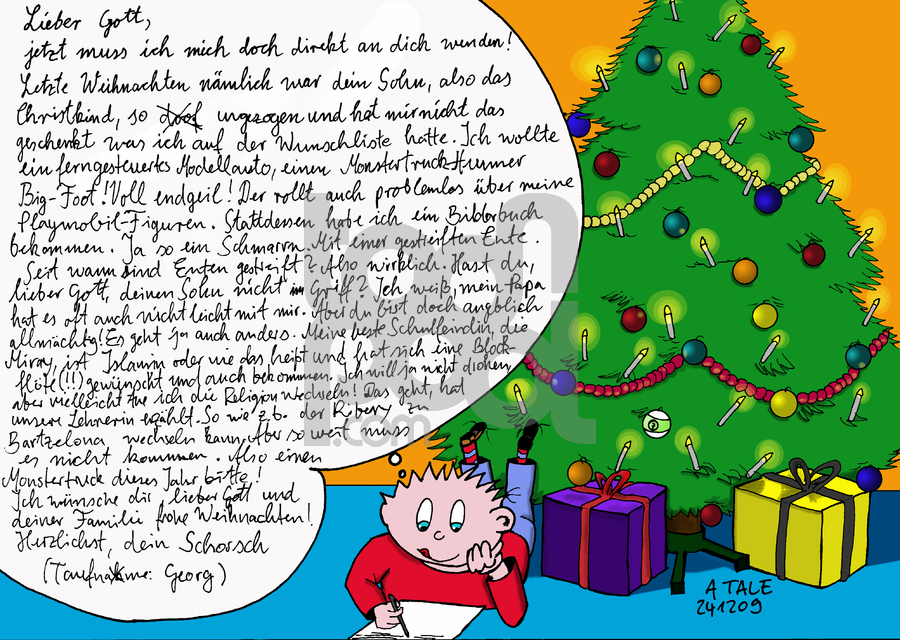 Lieber Gott,
jetzt muss ich mich doch direkt an dich wenden!
Letzte Weihnachten nämlich war dein Sohn, also das
Christkind, so doof ungezogen und hat mir nicht das
geschenkt was ich auf der Wunschliste hatte. Ich wollte
ein ferngesteuertes Modellauto, einen Monstertruck Hummer
Big-Foot! Voll endgeil! Der rollt auch problemlos über meine
Playmobil-Figuren. Stattdessen habe ich ein Bilderbuch
bekommen. Ja so ein Schmarrn. Mit einer gestreiften Ente.
Seit wann sind Enten gestreift? Also wirklich. Hast du,
lieber Gott, deinen Sohn nicht im Griff? Ich weiß, mein Papa
hat es oft auch nicht leicht mit mir. Aber du bist doch angeblich
allmächtig! Es geht ja auch anders. Meine beste Schulfeindin, die
Miray, ist Islamin oder wie das heißt und hat sich eine Block-
flöte (!!) gewünscht und auch bekommen. Ich will ja nicht drohen,
aber vielleicht tue ich die Religion wechseln! Das geht, hat
unsere Lehrerin erzählt. So wie z.b. der Ribery zu
Bartzelona wechseln kann. Aber so weit muss
es nicht kommen. Also einen
Monstertruck dieses Jahr, bitte!
Ich wünsche dir lieber Gott und
deiner Familie frohe Weihnachten!
Herzlichst, dein Schorsch
(Taufname: Georg)
toonpool
.com
2
A TALE
241209